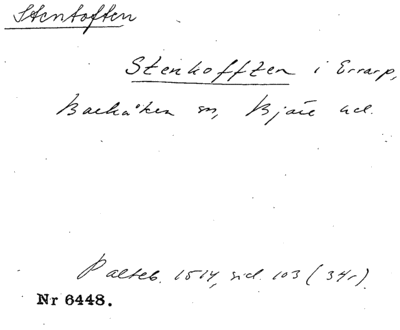 Stentoften
Stenkofften i Errarp,
Barkåkra sn, Bjäre hd.
Palteb. 1514, sid. 103 (34r).
Nr 6448.